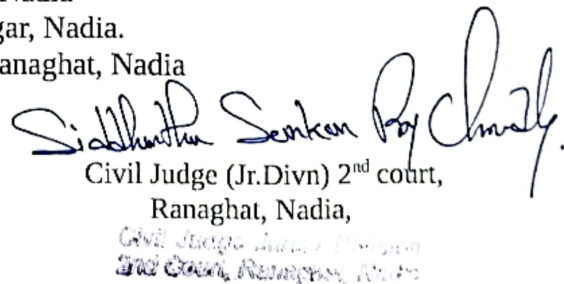 Nadia
gar, Nadia.
anaghat, Nadia
Siddhartha Sankar Roy Chowdhury.
Civil Judge (Jr.Divn) 2nd court,
Ranaghat, Nadia,
Civil Judge Junior Division
2nd Court, Ranaghat, Nadia